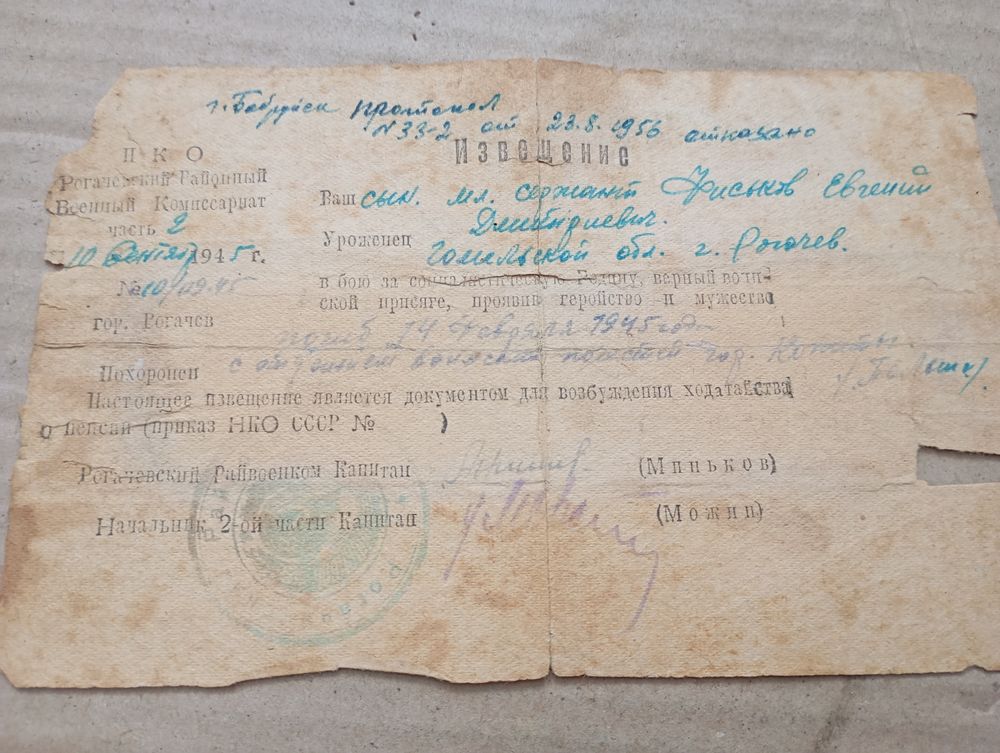 г. Бобруйск протокол
N 33-2 от 23.8.1956 отказано
Извещение
НКО
Рогачевский Районный
Военный Комиссариат
часть 2
10 Сентябр 1945 г.
№ 10/09.45
гор. Рогачев
Ваш сын. мл. сержант Фиськов Евгений
Дмитриевич.
Уроженец Гомельской обл. г. Рогачев.
в бою за социалистическую Родину, верный воин-
ской присяге, проявив геройство и мужество
погиб 14 февраля 1945 года
Похоронен с отданием воинских почестей гор.
(Польша).
Настоящее извещение является документом для возбуждения ходатайства
о пенсии (приказ НКО СССР № )
Рогачевский Райвоенком Капитан (Миньков)
Начальник 2-ой части Капитан (Можин)